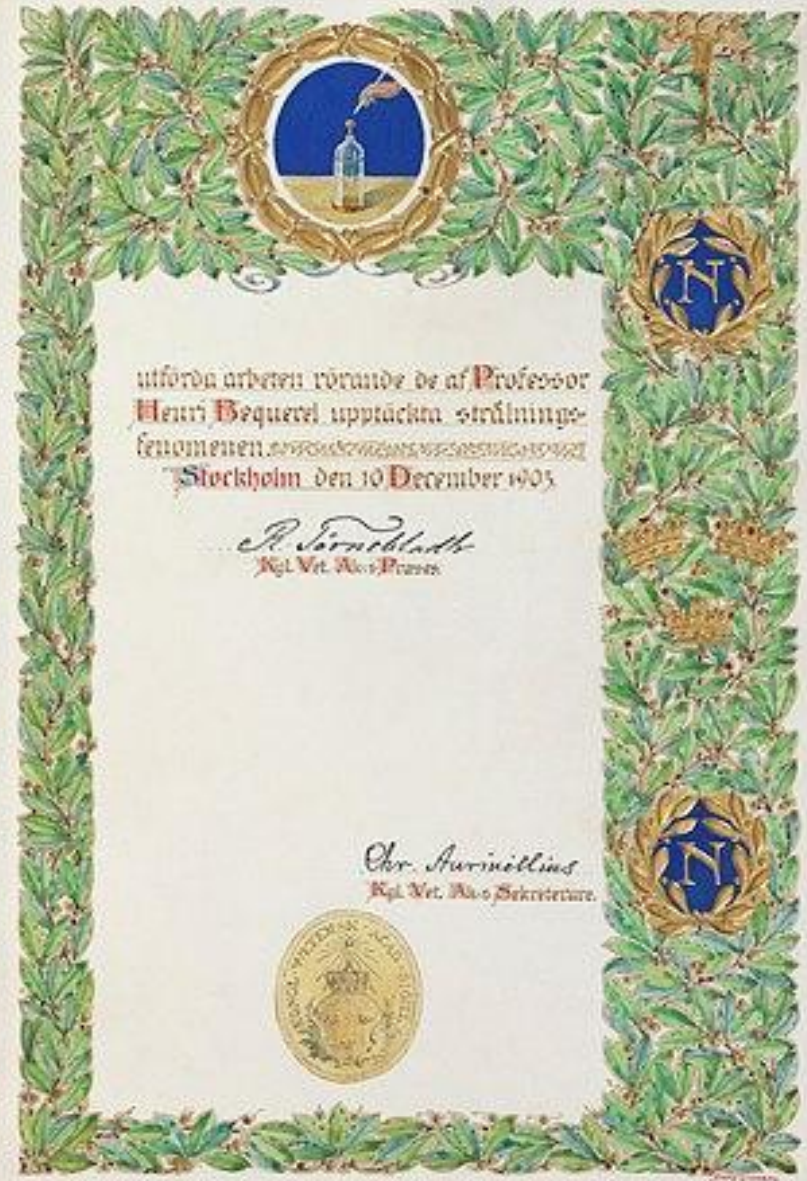 N
utförda arbeten rörande de af Professor
Henri Bequerel upptäckta strålnings-
fenomenen
Stockholm den 10 December 1903.
R. Törnebladh
Kgl. Vet. Ak:s Præses.
N
Chr. Aurivillius
Kgl. Vet. Ak:s Sekreterare.